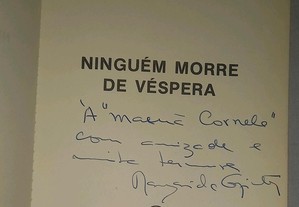 NINGUÉM MORRE
DE VÉSPERA
À "
com amizade e
muita ternura
Margarida